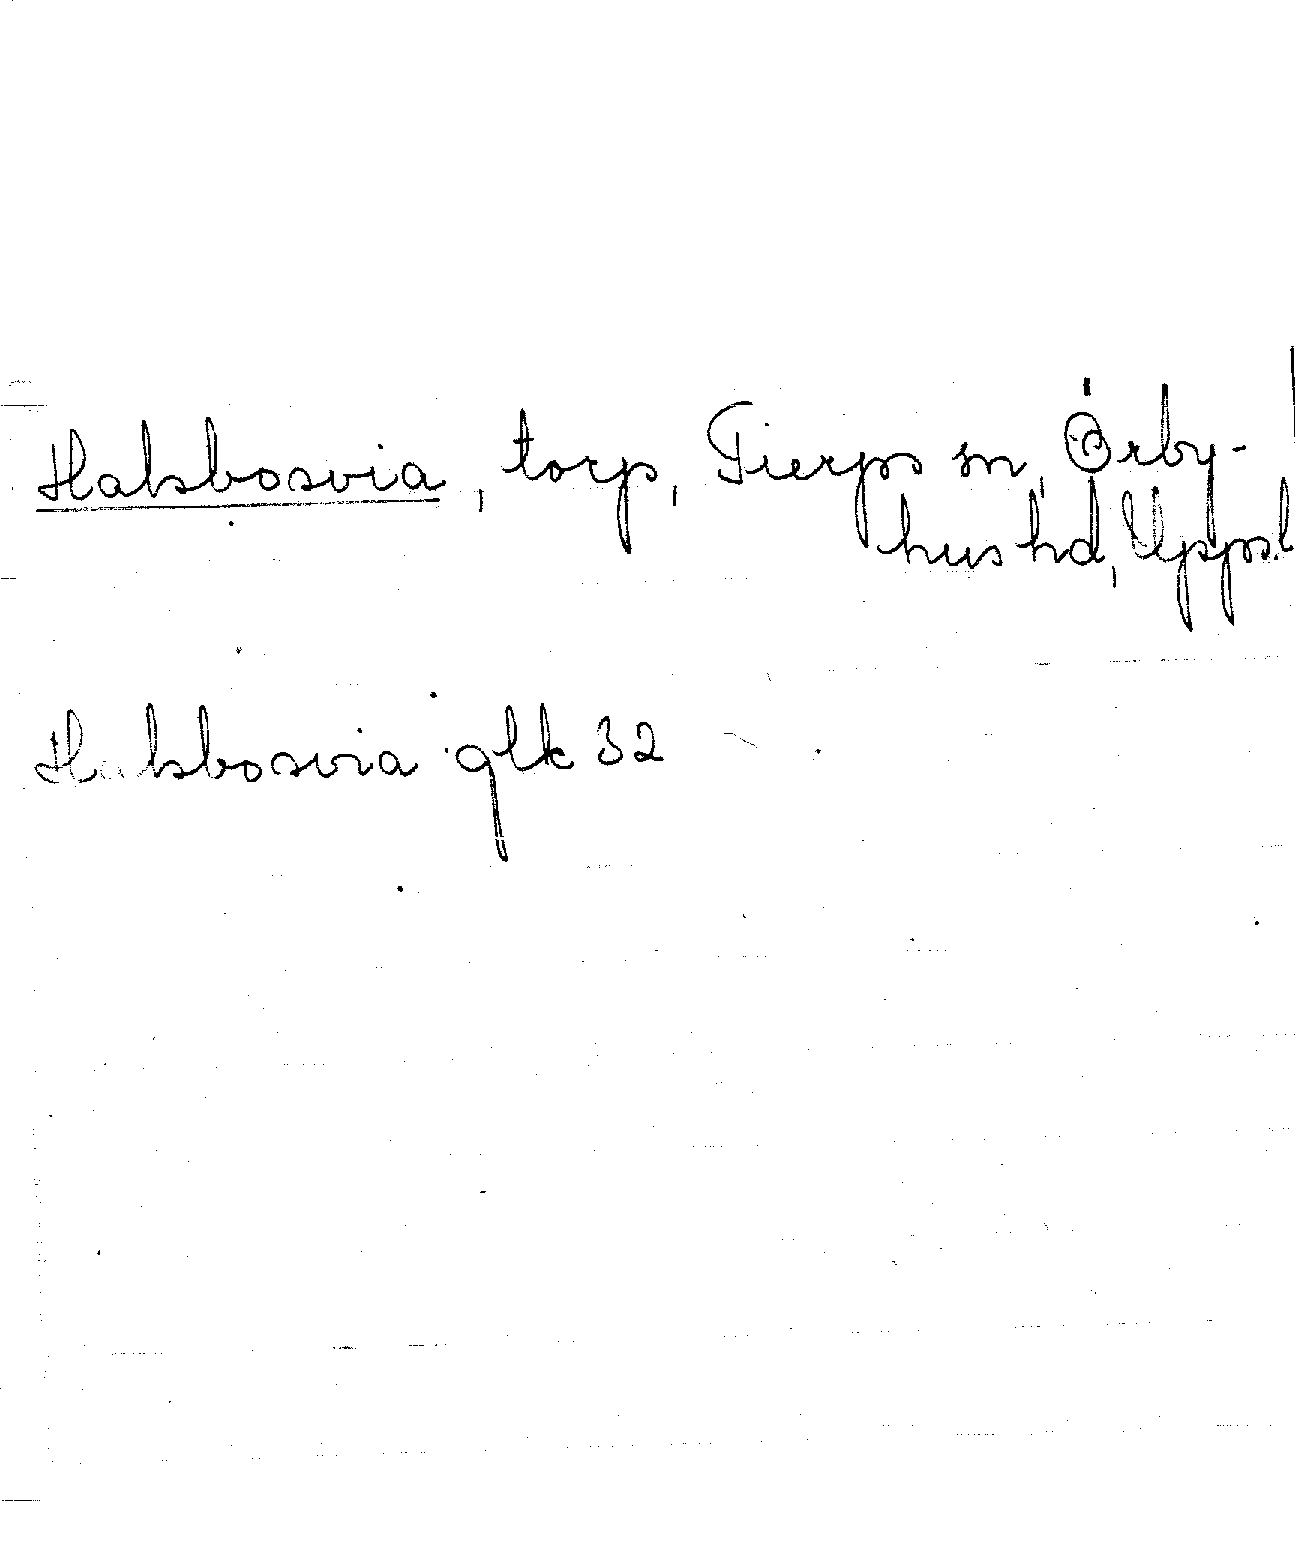 Halsbosvia, torp, Tierps sn, Örby-
hus hd, Upps.l
Halsbosvia glk 32